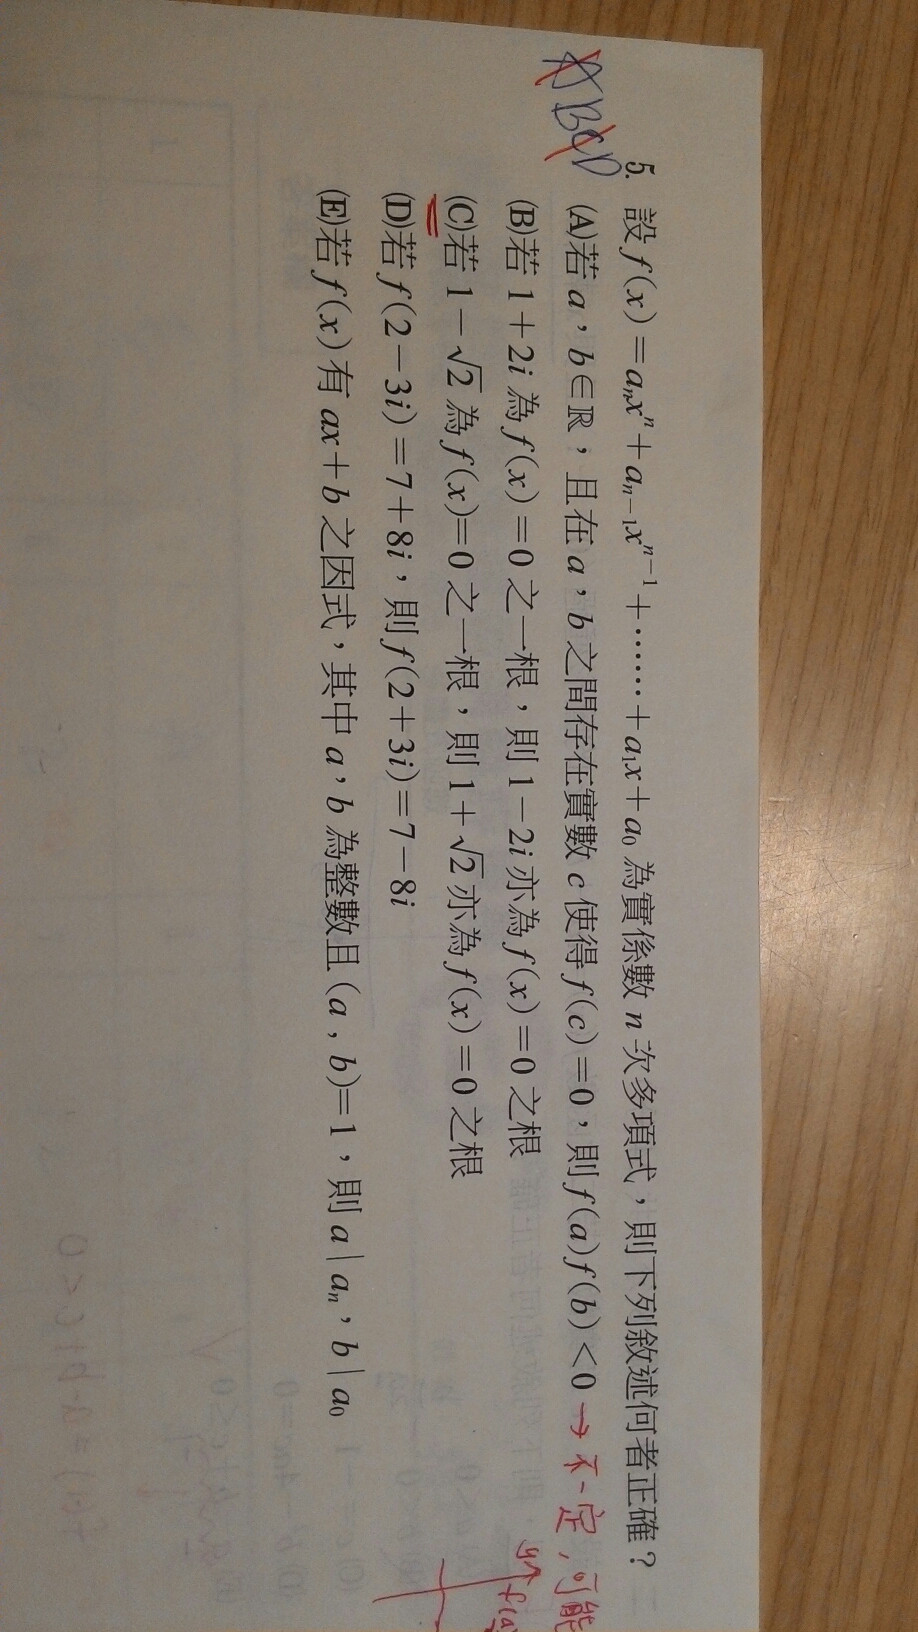 ABCD
5. 設 f(x)=aₙxⁿ+aₙ₋₁xⁿ⁻¹+……+a₁x+a₀ 為實係數 n 次多項式，則下列敘述何者正確？
(A)若 a，b∈ℝ，且在 a，b 之間存在實數 c 使得 f(c)=0，則 f(a)f(b)<0 → 不一定，可能
(B)若 1+2i 為 f(x)=0 之一根，則 1-2i 亦為 f(x)=0 之根
(C)若 1-√2 為 f(x)=0 之一根，則 1+√2 亦為 f(x)=0 之根
(D)若 f(2-3i)=7+8i，則 f(2+3i)=7-8i
(E)若 f(x) 有 ax+b 之因式，其中 a，b 為整數且 (a，b)=1，則 a｜aₙ，b｜a₀